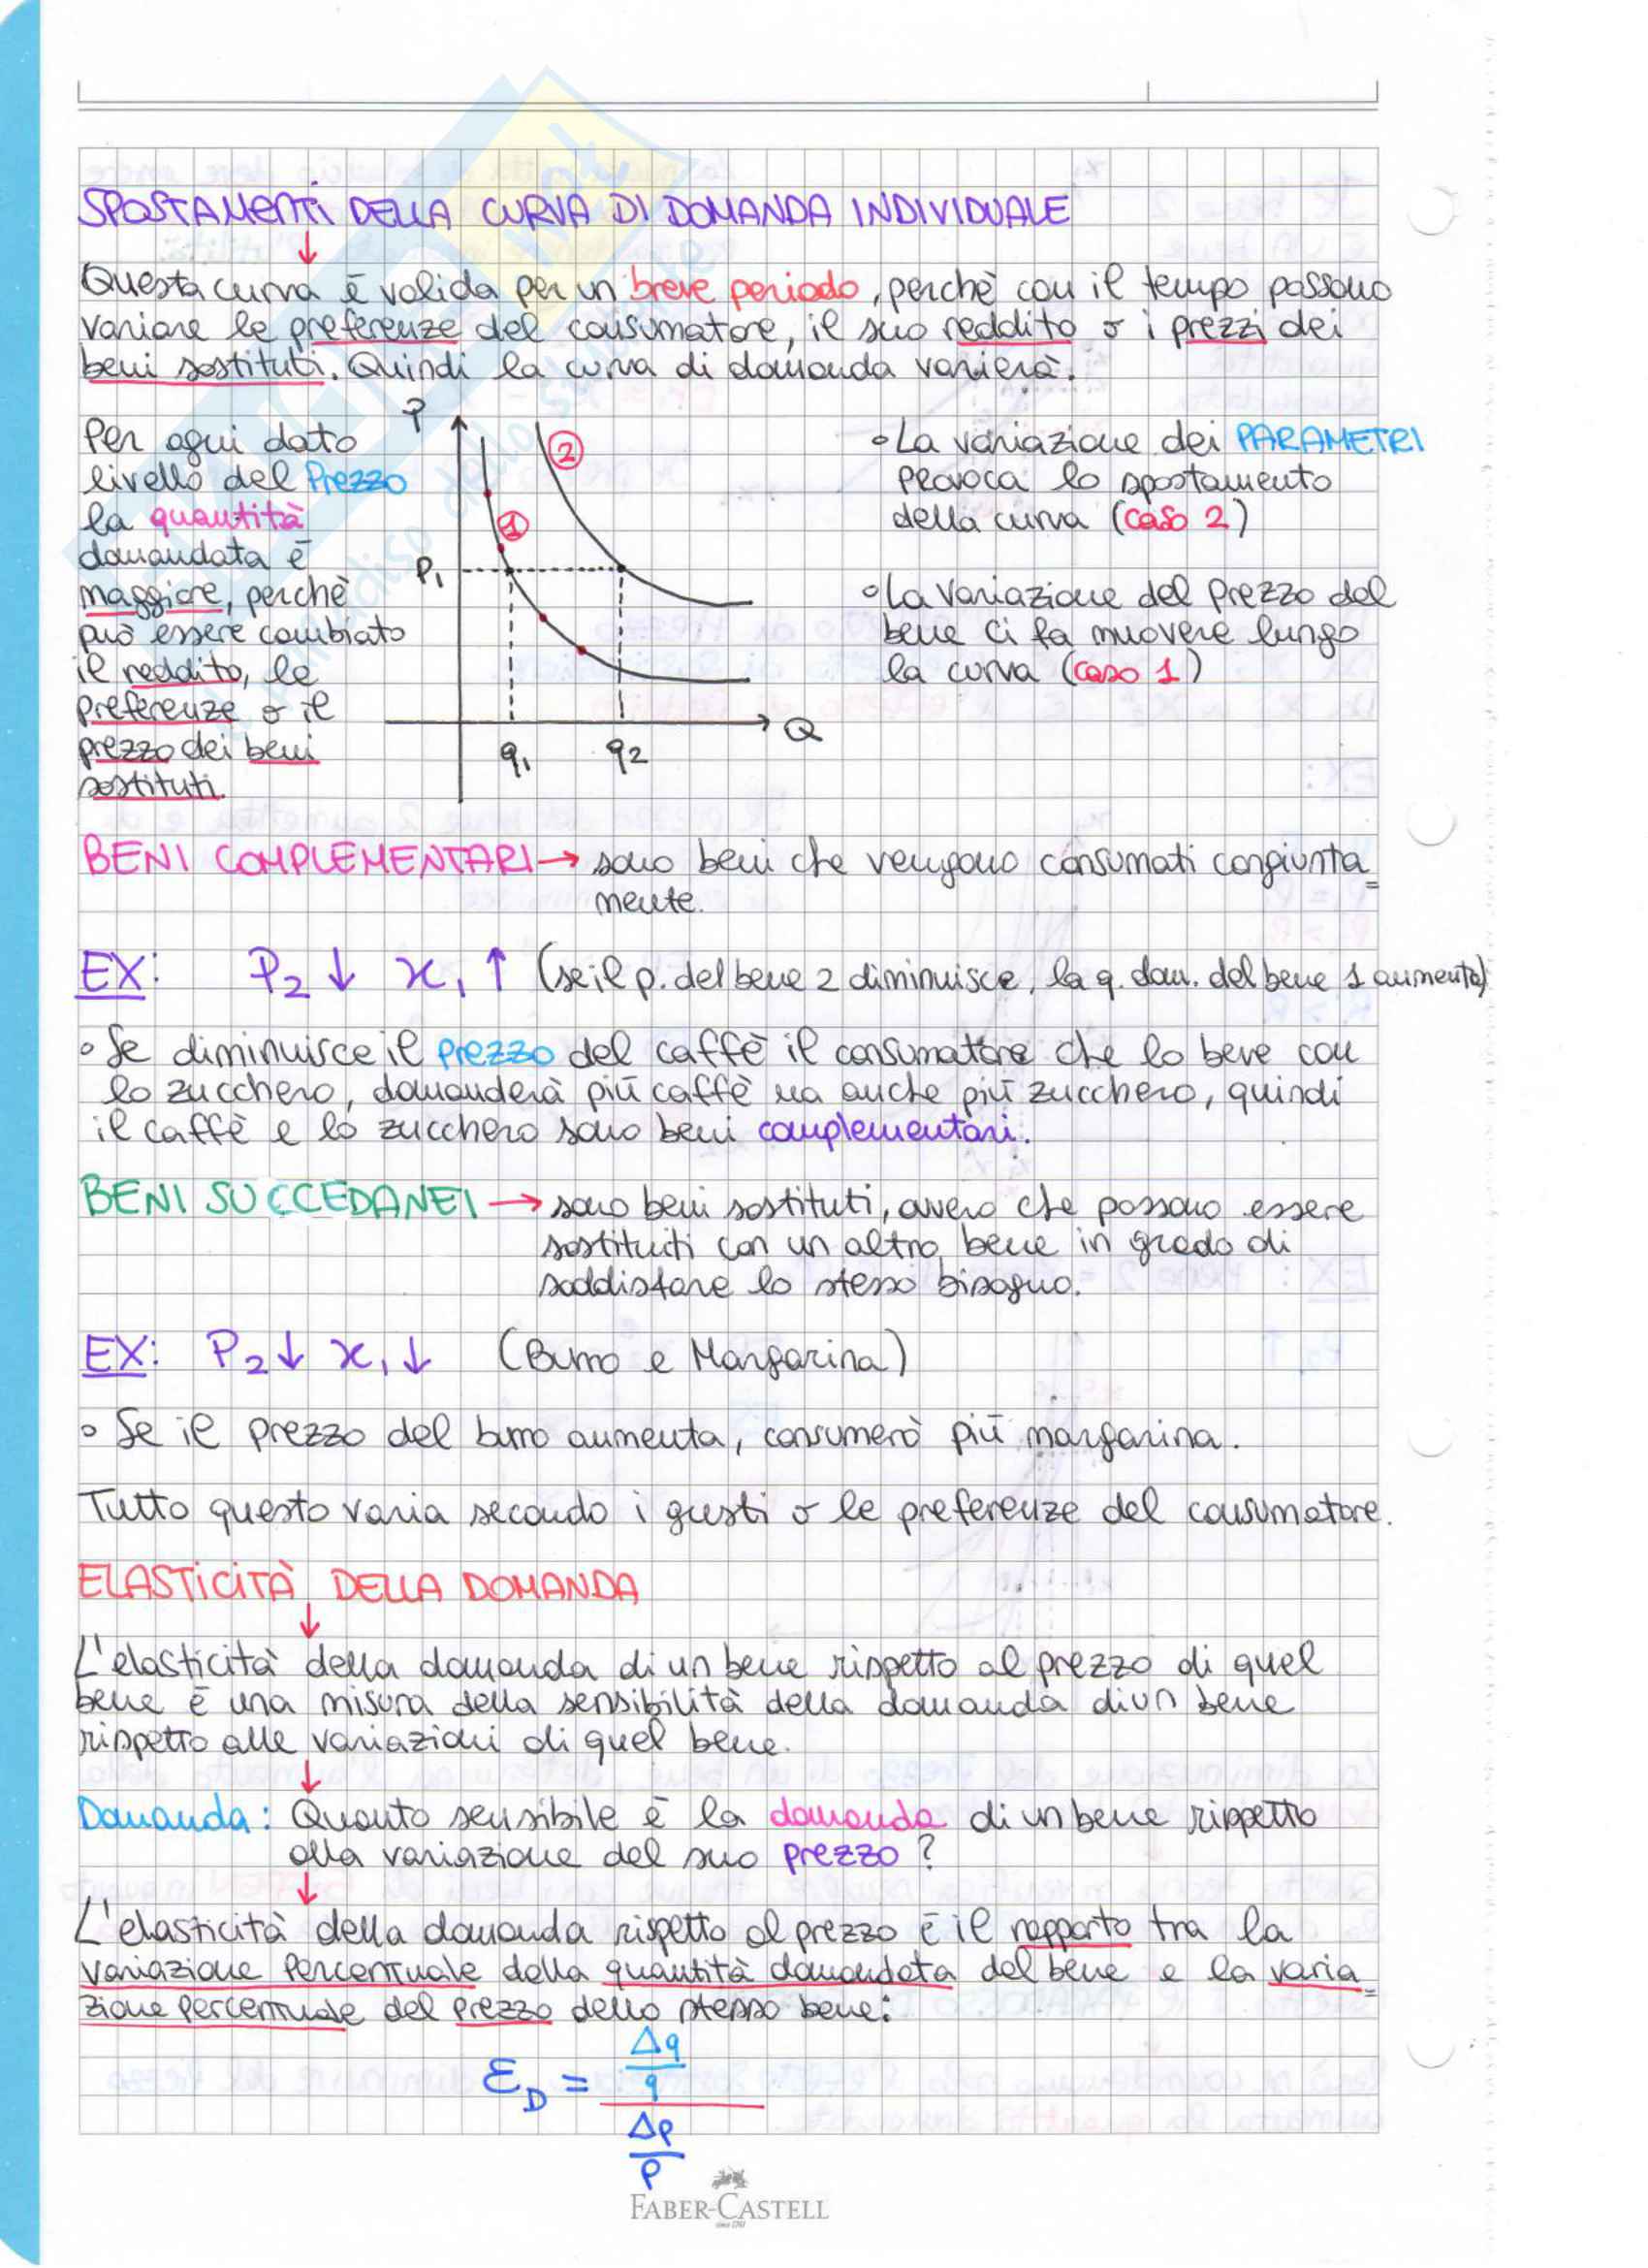 SPOSTAMENTI DELLA CURVA DI DOMANDA INDIVIDUALE
↓
Questa curva è valida per un breve periodo, perchè con il tempo possono
variare le preferenze del consumatore, il suo reddito o i prezzi dei
beni sostituti. Quindi la curva di domanda varierà.
Per ogni dato
livello del Prezzo
la quantità
domandata è
maggiore, perchè
può essere cambiato
il reddito, le
preferenze o il
prezzo dei beni
sostituti.
P
2
1
P1
q1
q2
Q
° La variazione dei PARAMETRI
PROVOCA lo spostamento
della curva (caso 2)
° La variazione del Prezzo del
bene ci fa muovere lungo
la curva (caso 1)
BENI COMPLEMENTARI → sono beni che vengono consumati congiunta=
mente.
EX: P2 ↓ x1 ↑ (se il p. del bene 2 diminuisce, la q. dom. del bene 1 aumenta)
° Se diminuisce il prezzo del caffè il consumatore che lo beve con
lo zucchero, domanderà più caffè ma anche più zucchero, quindi
il caffè e lo zucchero sono beni complementari.
BENI SUCCEDANEI → sono beni sostituti, ovvero che possono essere
sostituiti con un altro bene in grado di
soddisfare lo stesso bisogno.
EX: P2 ↓ x1 ↓ (Burro e Margarina)
° Se il prezzo del burro aumenta, consumerò più margarina.
Tutto questo varia secondo i gusti o le preferenze del consumatore.
ELASTICITÀ DELLA DOMANDA
↓
L'elasticità della domanda di un bene rispetto al prezzo di quel
bene è una misura della sensibilità della domanda di un bene
rispetto alle variazioni di quel bene.
↓
Domanda: Quanto sensibile è la domanda di un bene rispetto
alla variazione del suo prezzo?
↓
L'elasticità della domanda rispetto al prezzo è il rapporto tra la
variazione percentuale della quantità domandata del bene e la varia=
zione percentuale del prezzo dello stesso bene:
Δq
εD = q
Δp
p
FABER-CASTELL
since 1761